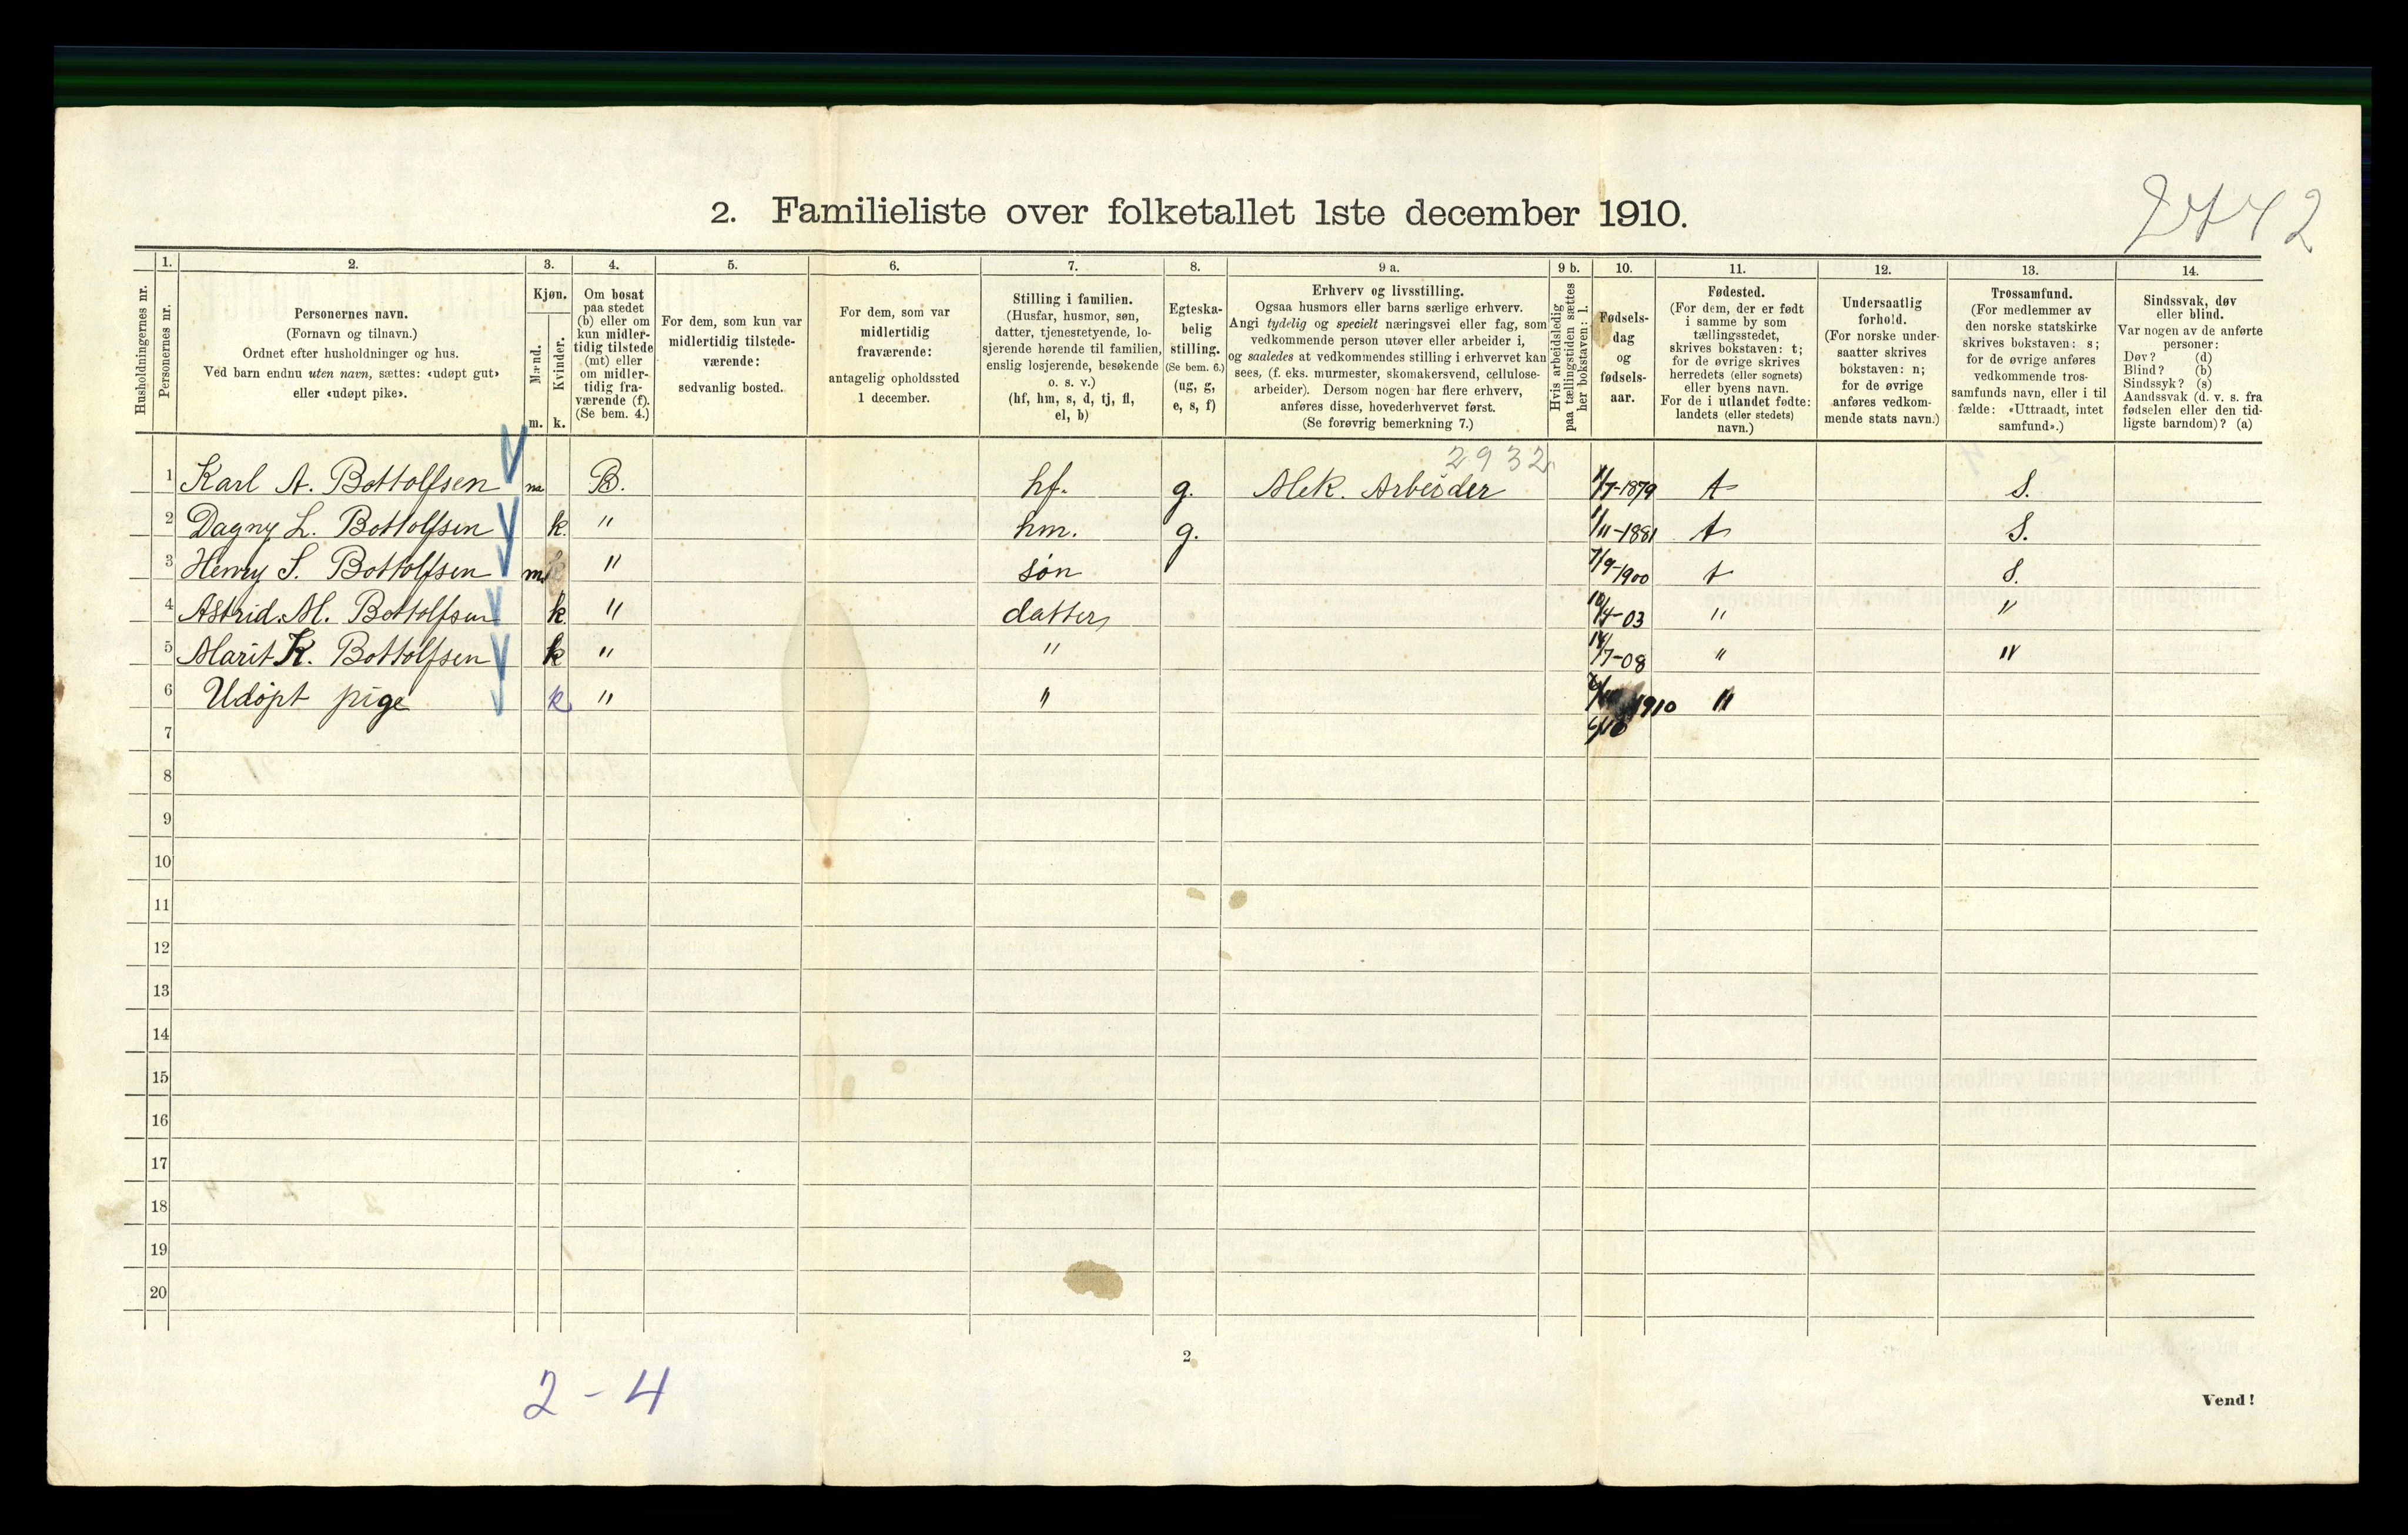 2. Familieliste over folketallet 1ste december 1910.
Husholdningernes nr.
1.
Personernes nr.
2.
Personernes navn.
(Fornavn og tilnavn.)
Ordnet efter husholdninger og hus.
Ved barn endnu uten navn, sættes: «udøpt gut»
eller «udøpt pike».
3.
Kjøn.
Mænd.
Kvinder.
m. k.
4.
Om bosat
paa stedet
(b) eller om
kun midler-
tidig tilstede
(mt) eller
om midler-
tidig fra-
værende (f).
(Se bem. 4.)
5.
For dem, som kun var
midlertidig tilstede-
værende:
sedvanlig bosted.
6.
For dem, som var
midlertidig
fraværende:
antagelig opholdssted
1 december.
7.
Stilling i familien.
(Husfar, husmor, søn,
datter, tjenestetyende, lo-
sjerende hørende til familien,
enslig losjerende, besøkende
o. s. v.)
(hf, hm, s, d, tj, fl,
el, b)
8.
Egteska-
belig
stilling.
(Se bem. 6.)
(ug, g,
e, s, f)
9 a.
Erhverv og livsstilling.
Ogsaa husmors eller barns særlige erhverv.
Angi tydelig og specielt næringsvei eller fag, som
vedkommende person utøver eller arbeider i,
og saaledes at vedkommendes stilling i erhvervet kan
sees, (f. eks. murmester, skomakersvend, cellulose-
arbeider). Dersom nogen har flere erhverv,
anføres disse, hovederhvervet først.
(Se forøvrig bemerkning 7.)
9 b.
Hvis arbeidsledig
paa tællingstiden sættes
her bokstaven: l.
10.
Fødsels-
dag
og
fødsels-
aar.
11.
Fødested.
(For dem, der er født
i samme by som
tællingsstedet,
skrives bokstaven: t;
for de øvrige skrives
herredets (eller sognets)
eller byens navn.
For de i utlandet fødte:
landets (eller stedets)
navn.)
12.
Undersaatlig
forhold.
(For norske under-
saatter skrives
bokstaven: n;
for de øvrige
anføres vedkom-
mende stats navn.)
13.
Trossamfund.
(For medlemmer av
den norske statskirke
skrives bokstaven: s;
for de øvrige anføres
vedkommende tros-
samfunds navn, eller i til
fælde: «Uttraadt, intet
samfund».)
14.
Sindssvak, døv
eller blind.
Var nogen av de anførte
personer:
Døv? (d)
Blind? (b)
Sindssyk? (s)
Aandssvak (d. v. s. fra
fødselen eller den tid-
ligste barndom)? (a)
2932
1 Karl A. Bottolfsen m B. hf. g. Mek. Arbeider 1/7-1879 t S.
2 Dagny L. Bottolfsen k. " hm. g. 1/11-1881 t S.
3 Henry S. Bottolfsen m. " søn 7/9-1900 t S.
4 Astrid. M. Bottolfsen k. " datter 10/4-03 " "
5 Marit K. Bottolfsen k " " 14/7-08 " "
6 Udøpt pige k " " 1910 "
7
8
9
10
11
12
13
14
15
16
17
18
19
20
2
2-4
Vend!